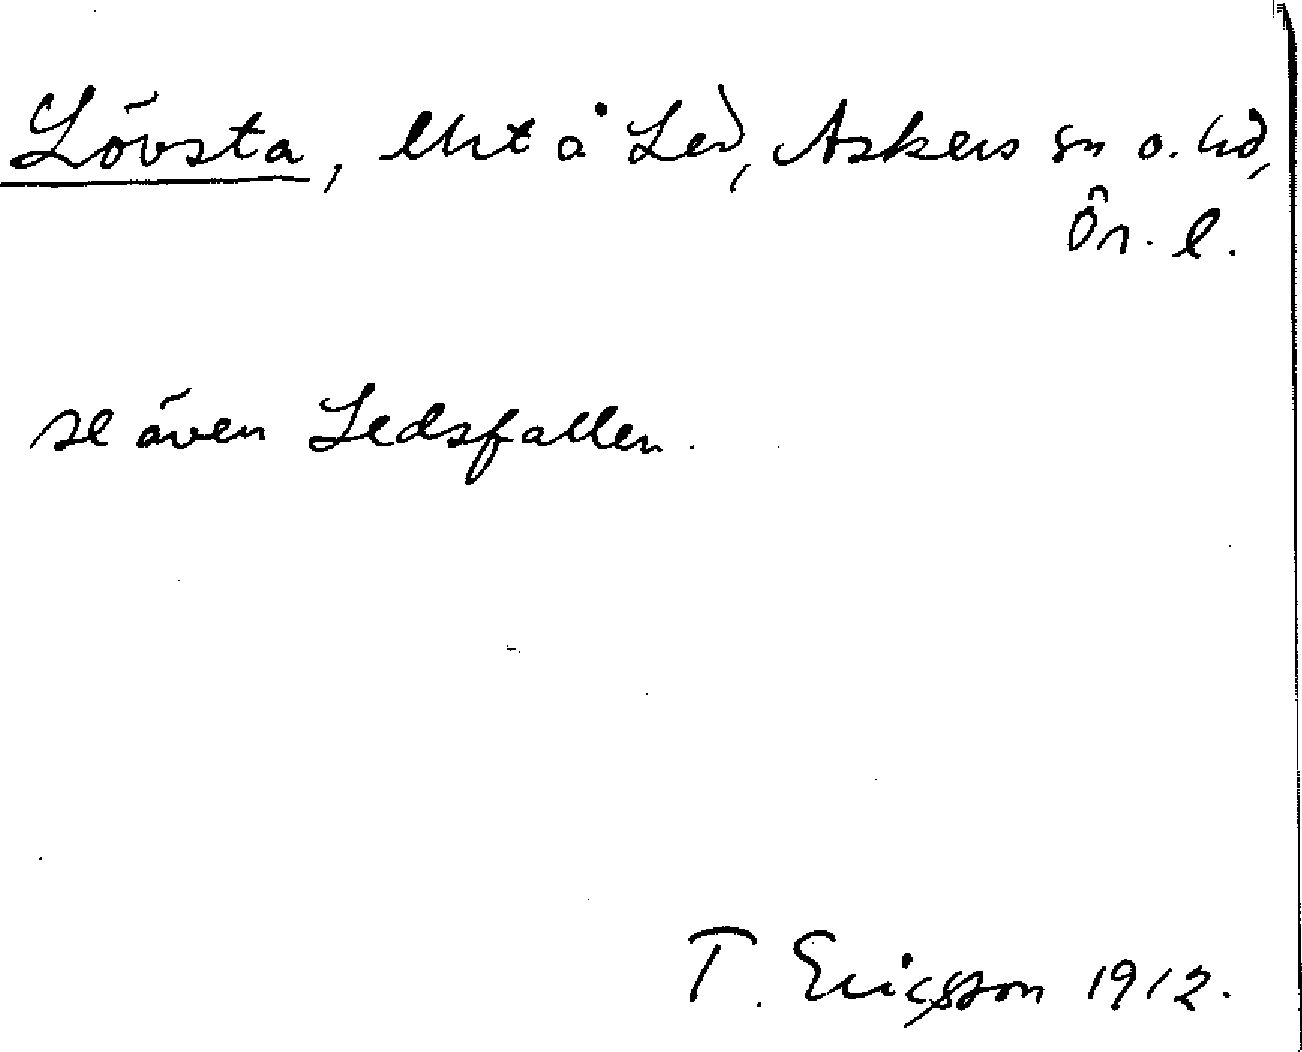 Lövsta, lht å Led, Askers sn o. hd,
Ör. l.
se även Ledsfallen.
T. Ericsson 1912.